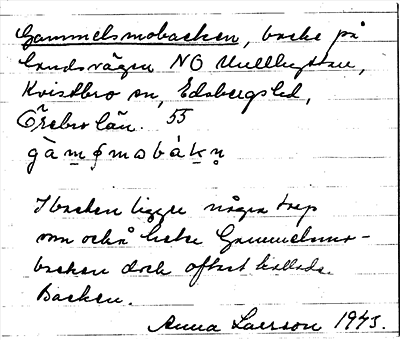 Gammelsmobacken, backe på
landsvägen NO Ullhyttan,
Kvistbro sn, Edsbergs hd,
Örebro län. 55

I backen ligger några torp
som också heter Gammelsmo-
backen dock oftast kallade
Backen.
Anna Larsson 1943.